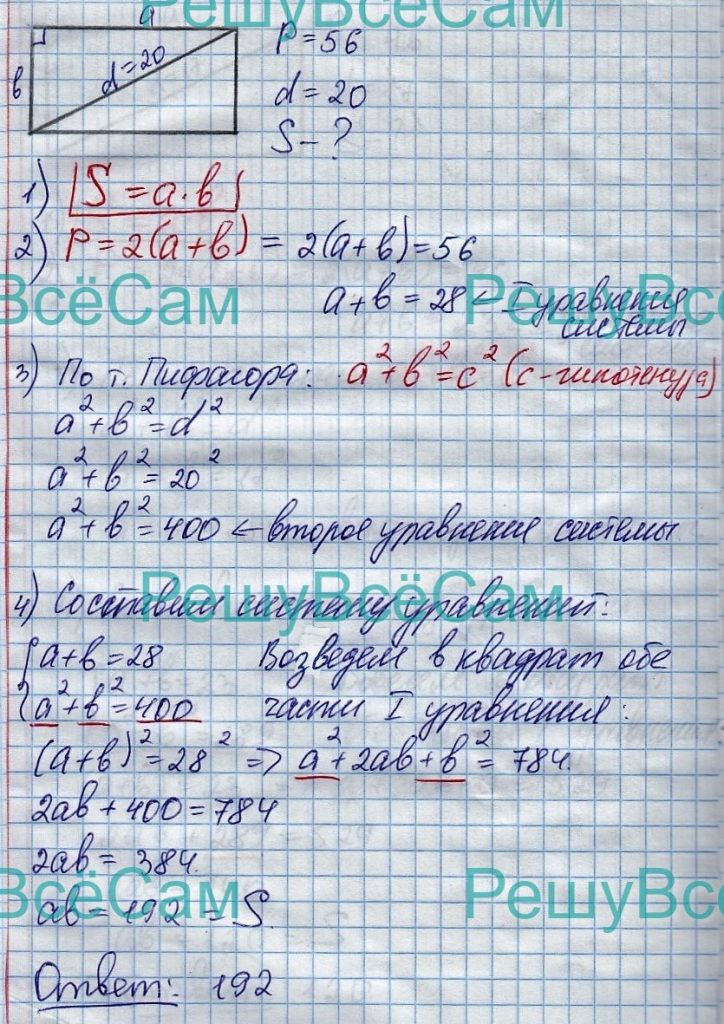 РешуВсёСам
a
P = 56
в
d = 20
d = 20
S - ?
1) S = a · в
2) P = 2(a + в) = 2(a + в) = 56
ВсёСам
РешуВсё
a + в = 28 ← I уравнения
системы
3) По т. Пифагора: a² + в² = c² (c - гипотенуза)
a² + в² = d²
a² + в² = 20²
a² + в² = 400 ← второе уравнения системы
РешуВсёСам
4) Составим систему уравнений:
{ a + в = 28 Возведем в квадрат обе
a² + в² = 400 части I уравнения:
(a + в)² = 28² => a² + 2aв + в² = 784.
2aв + 400 = 784
2aв = 384.
ВсёСам
РешуВсё
aв = 192 = S.
Ответ: 192